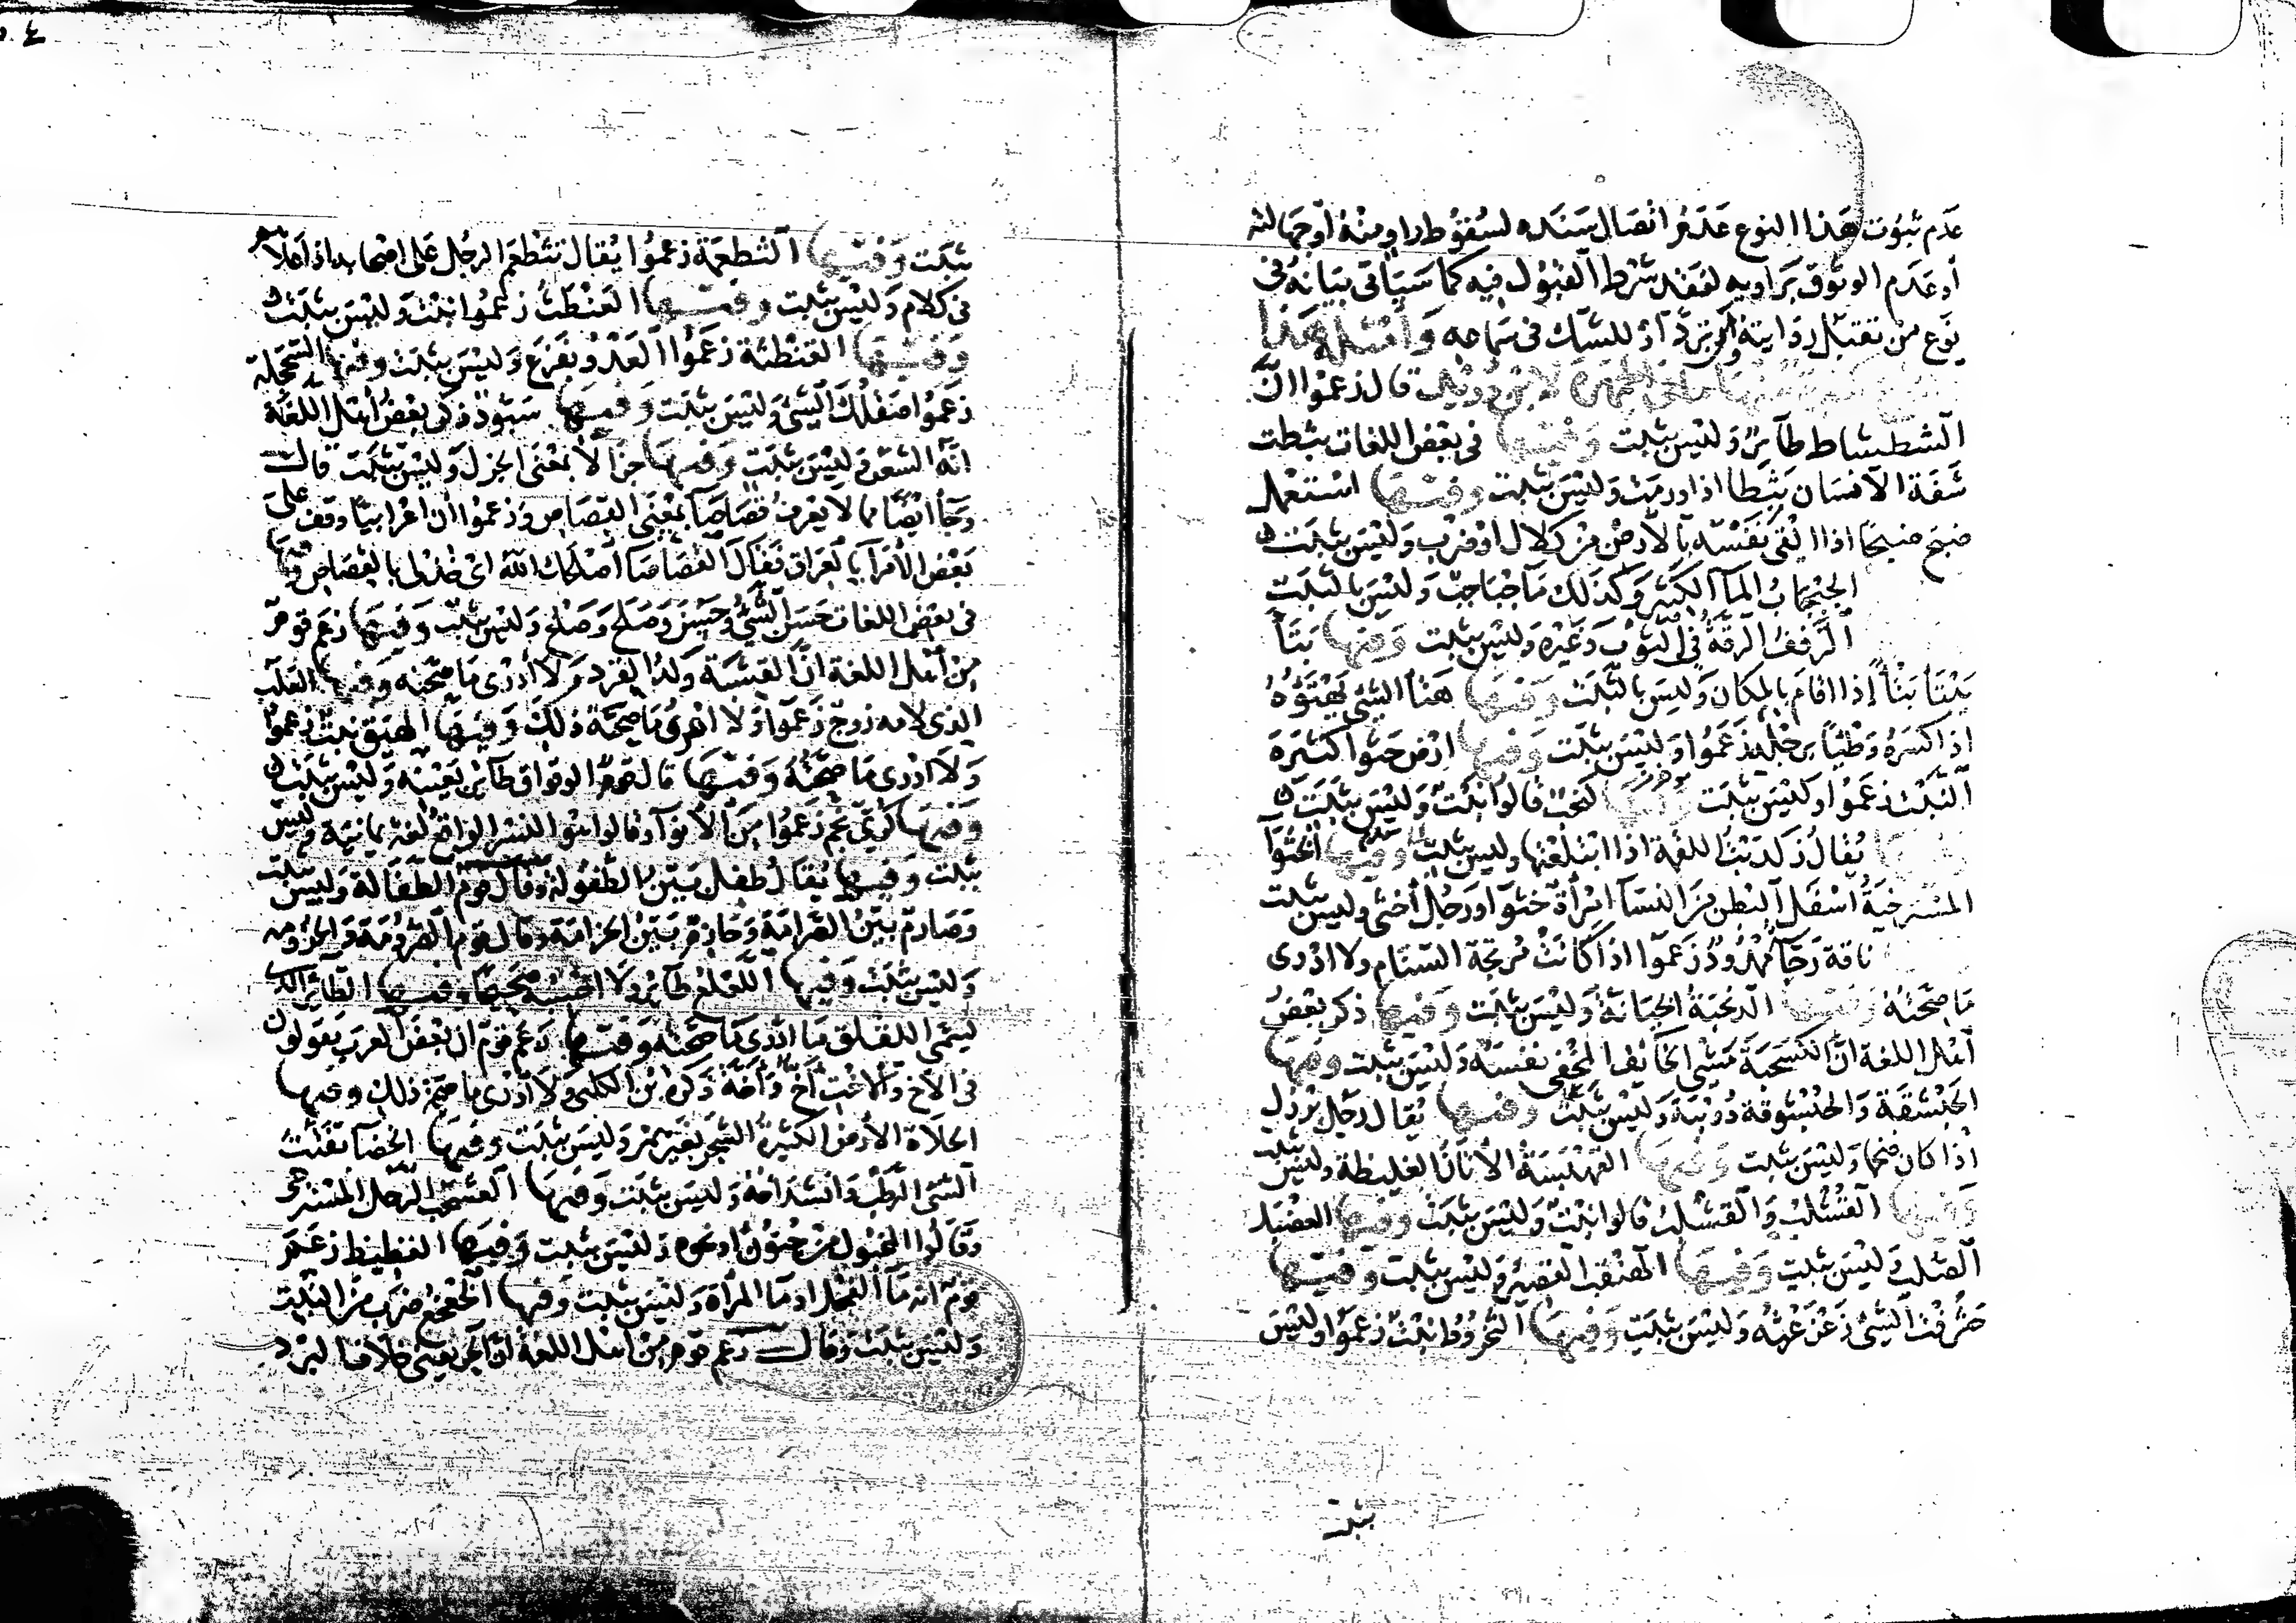 عدم ثبوت هذا النوع عدم اتصال سنده لسقوط راو منه أو جهالته
أو عدم الوثوق براويه لفقد شرط القبول فيه كما سيأتي بيانه في
نوع من تقبل روايته ومن ترد أو للشك في سماعه وأمثلة هذا
لابن دريد قال زعموا ان
الشطشاط طائر وليس بثبت وفيها في بعض اللغات بثطت
شفة الانسان بثطا اذا ورمت وليس بثبت وفيها استعمل
ضبج ضبجا اذا القى نفسه بالأرض من كلال أو ضرب وليس بثبت
الجبجاب الماء الكثير وكذلك ماء جباجب وليس بالثبت
الرفف الرقة في الثوب وغيره وليس بثبت وفيها بتأ
يبتأ بتأ إذا اقام بالمكان وليس بالثبت وفيها هتأ الشئ يهتؤه
اذا كسره وطئا برجله زعموا وليس بثبت وفيها ارض حثوا كثيرة
زعموا وليس بثبت قالوا نبت وليس بثبت
يقال زلدبت اللقمة اذا ابتلعتها وليس بثبت وفيها الخثوآ
المسترخية اسفل البطن من النسآ امرأة خثوآ ورجل أخثى وليس بثبت
ناقة رجآ ممدود زعموا اذا كانت مرتجة السنام ولا ادرى
ما صحته وفيها الدنحبة الخيانة وليس بثبت وفيها ذكر بعض
أهل اللغة ان الكسحبة مشي الخائف المخفي نفسه وليس بثبت وفيها
الحبشقة والحبشوقة دويبة وليس بثبت وفيها يقال رجل برزل
اذا كان ضخما وليس بثبت وفيها القهبسة الأتان الغليظة وليس بثبت
وفيها القشلب والقشلب قالوا نبت وليس بثبت وفيها العضبل
الصلب وليس بثبت وفيها الهنقب القصير وليس بثبت وفيها
حثرفت الشئ زعزعته وليس بثبت وفيها الثخروط نبت زعموا وليس
بثبت
بثبت وفيها الثطعمة زعموا يقال تثطعم الرجل على اصحابه اذا علاهم
في كلام وليس بثبت وفيها العنطث زعموا نبت وليس بثبت
وفيها القنطثة زعموا العدو بفزع وليس بثبت وفيها السحجلة
زعموا صقلك الشئ وليس بثبت وفيها سبوذ ذكر بعض أهل اللغة
انه الشعر وليس بثبت وفيها جزالا بمعنى الجزل وليس بثبت قال
وجآ ايضا مما لا يعرف قصاصآ بمعنى القصاص وزعموا أن اعرابيا وقف على
بعض الأمرآ بالعراق فقال القصاصا اصلحك الله اى خذ لى بالقصاص وفيها
في بعض اللغات حسن الشئ وحسن وصلح وصلح وليس بثبت وفيها زعم قوم
من اهل اللغة ان القشة ولد القرد ولا أدرى ما صحته وفيها القلب
الذى لامه زوج زعموا ولا ادرى ما صحة ذلك وفيها الهيق نبت زعموا
ولا ادرى ما صحته وفيها قال قوم الوقواق طائر بعينه وليس بثبت
وفيها كرى نجم زعموا من الأنوآ وقالوا هو النسر الواقع لغة يمانية وليس
بثبت وفيها يقال طفل بين الطفولة وقال قوم الطفالة وليس بثبت
وصارم بين الصرامة وحازم بين الحزامة وقال قوم الصرومة والحزومة
وليس بثبت وفيها اللعلع طائر ولا احسبه صحيحا وفيها الطائر الذى
يسمى اللقلق ما ادرى ما صحته وفيها زعم قوم ان بعض العرب يقولون
في الأخ والأخت أخ وأخة ذكره ابن الكلبى ولا أدرى ما صحة ذلك وفيها
الحلاة الأرض الكثيرة الشجر بغير همز وليس بثبت وفيها الخضا تفتت
الشئ الرطب وانشداخه وليس بثبت وفيها العشجب الرجل المسترخى
وقالوا المخبول من جنون أو نحوه وليس بثبت وفيها الفظيظ زعم
قوم انه مآ الفحل او مآ المرأة وليس بثبت وفيها الخعخع ضرب من النبت
وليس بثبت وقال زعم قوم من اهل اللغة ان الحر يعنى خلاف البرد